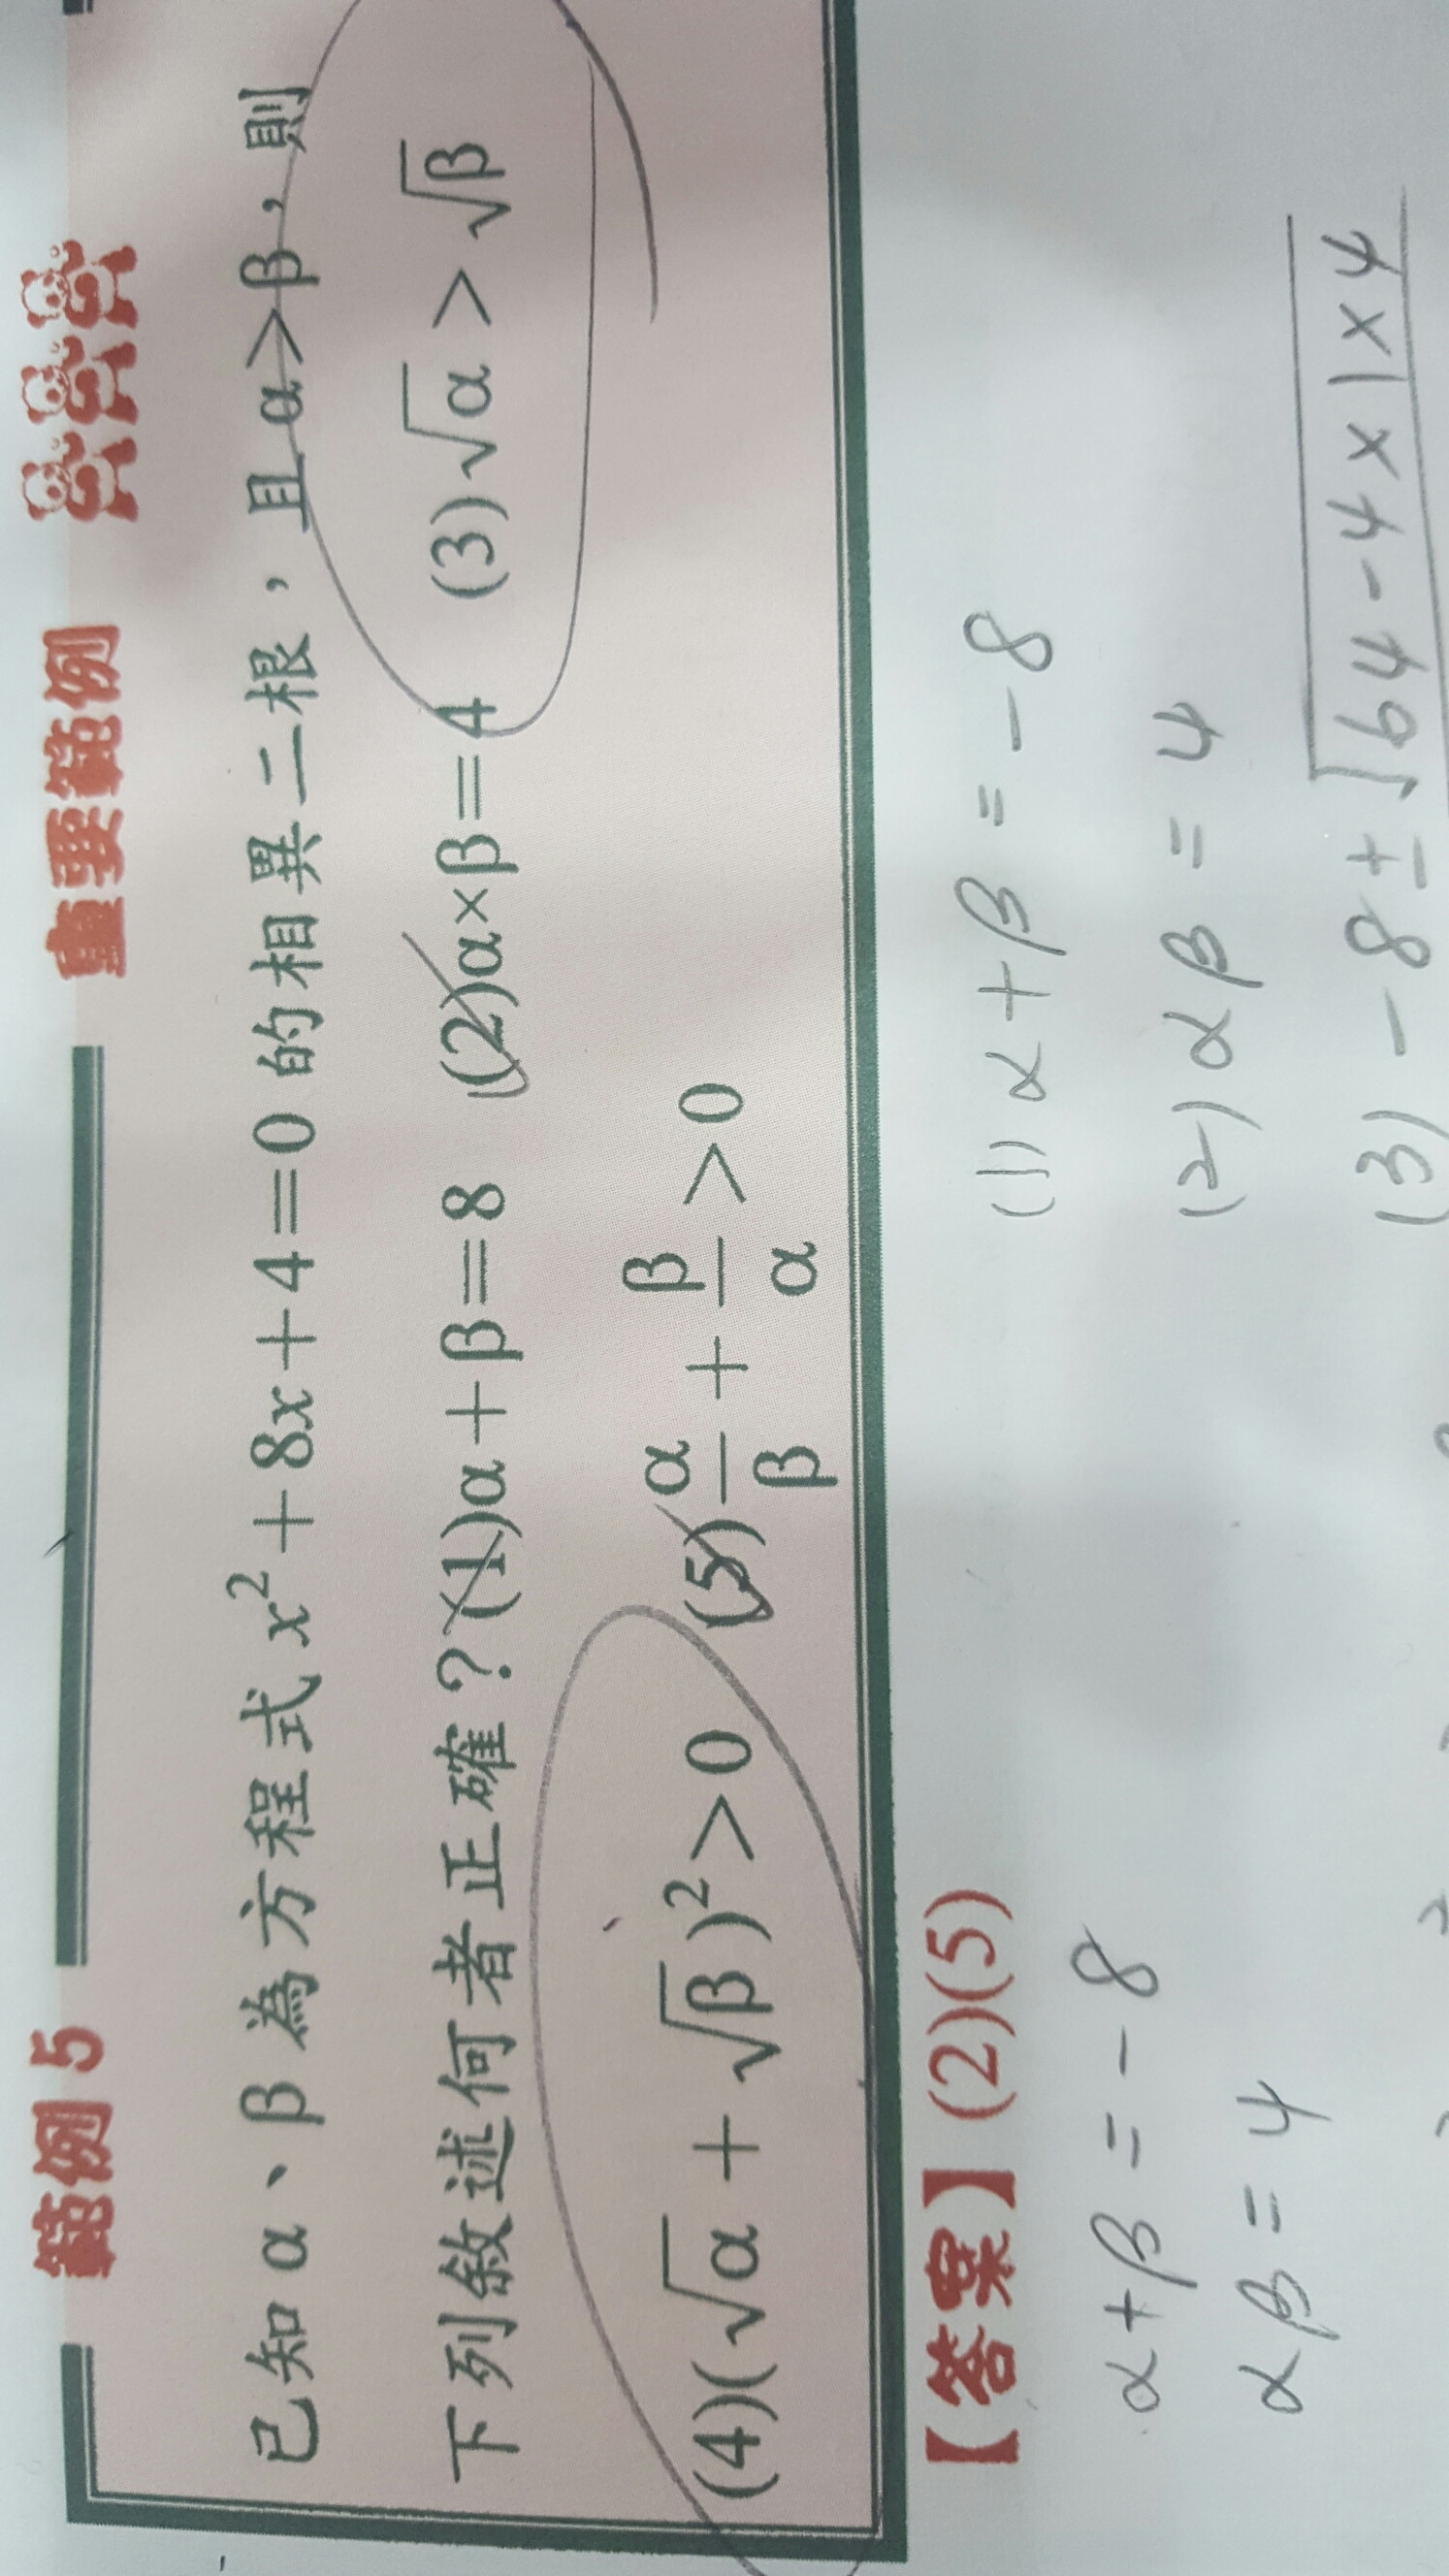 範例 5 重要範例
已知 α、β 為方程式 x² + 8x + 4 = 0 的相異二根，且 α > β，則
下列敘述何者正確？(1)α + β = 8 (2)α × β = 4 (3)√α > √β
(4)(√α + √β)² > 0 (5)α/β + β/α > 0
【答案】(2)(5)
α + β = - 8
αβ = 4
(1) α + β = - 8
(2) αβ = 4
(3) - 8 ± √64 - 4 × 1 × 4